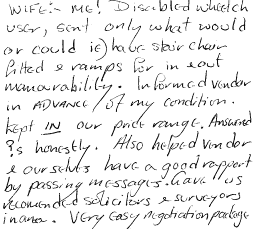 WIFE:- ME! Discibled wheelch
user, sent only what would
or could ie) have stair chair
fitted & ramps for in & out
manourability. Informed vendor
in ADVANCE of my condition.
Kept IN our price range. Answered
?s honestly. Also helped vendor
& ourselves have a good rapport
by passing messages. Gave us
recomended solicitors & surveyors
in area. Very easy negotiation package